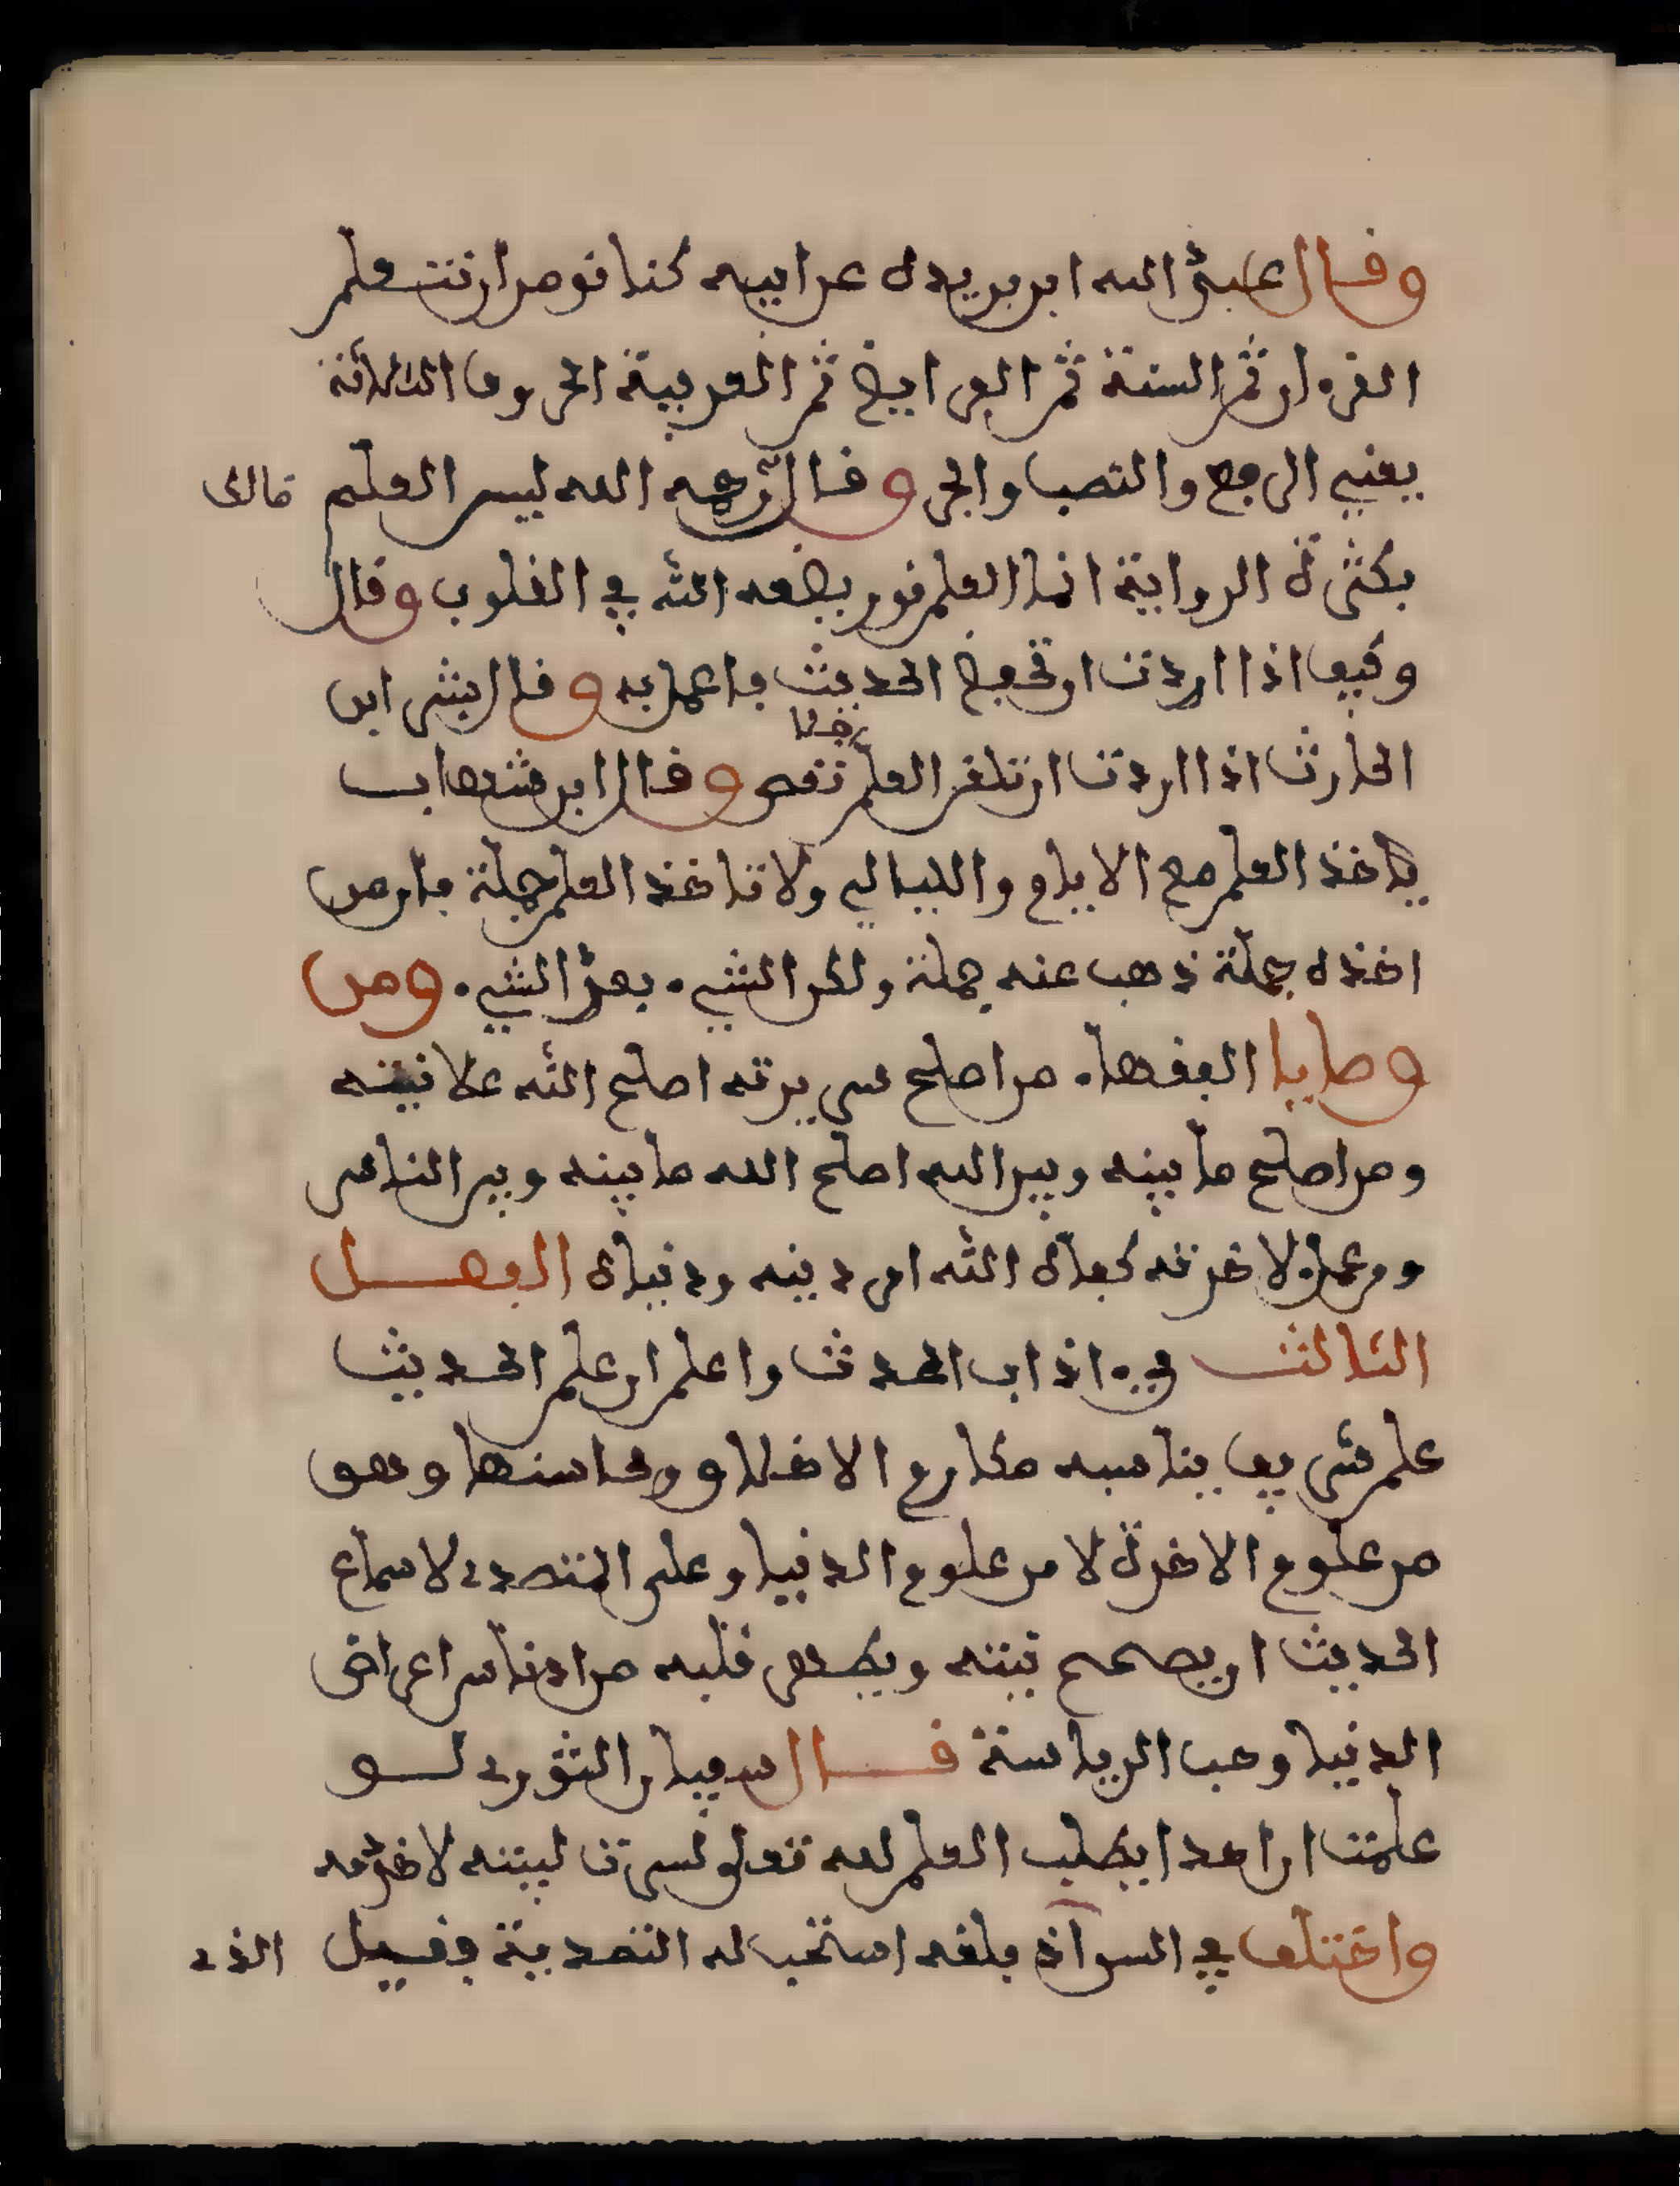 وقال عبد الله ابن بريدة عن ابيه كنا نومر ان نتعلم
القرءان ثم السنة ثم الفرايض ثم العربية الحروف الثلاثة
يعني الرفع والنصب والجر وقال رحمه الله ليس العلم مالك
بكثرة الرواية انما العلم نور يضعه الله في القلوب وقال
وكيع اذا اردت ان تحفظ الحديث فاعمل به وقال بشر ابن
الحارث اذا اردت ان تلقن العلم فلا تعص وقال ابن شهاب
ياخذ العلم مع الايام والليالي ولا تاخذ العلم جملة فان من
اخذه جملة ذهب عنه جملة ولكن الشيء بعد الشيء ومن
وصايا الفقهاء من اصلح سريرته اصلح الله علانيته
ومن اصلح ما بينه وبين الله اصلح الله ما بينه وبين الناس
ومن عمل لاخرته كفاه الله امر دينه ودنياه الفصل
الثالث في ءاداب المحدث واعلم ان علم الحديث
علم شريف يناسبه مكارم الاخلاق ومحاسنها وهو
من علوم الاخرة لا من علوم الدنيا وعلى المتصدي لاسماع
الحديث ان يصحح نيته ويطهر قلبه من ادناس اعراض
الدنيا وحب الرياسة قال سفيان الثوري لو
علمت ان احدا يطلب العلم لله تعلى لسرت لبيته لاخذ عنه
واختلف في السن اذا بلغه استحب له التصدية فقيل الذي